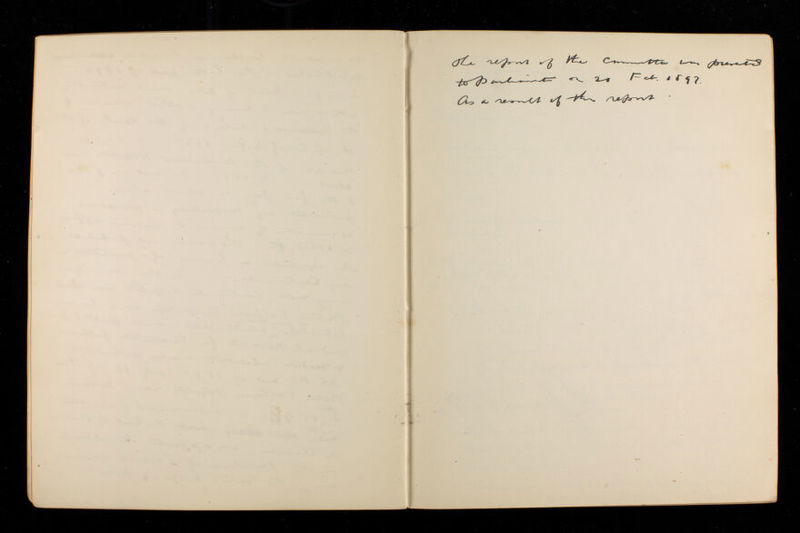 The report of the Committee was presented
to Parliament on 20 Feb. 1897.
As a result of the report